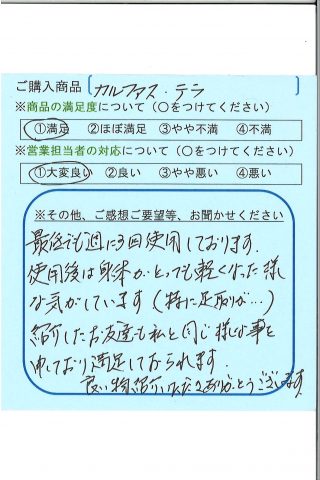 ご購入商品 カルファス・テラ
※商品の満足度について（○をつけてください）
①満足 ②ほぼ満足 ③やや不満 ④不満
※営業担当者の対応について（○をつけてください）
①大変良い ②良い ③やや悪い ④悪い
※その他、ご感想ご要望等、お聞かせください
最低でも週に3回使用しております。
使用後は身体がとっても軽くなった様
な気がしています（特に足取りが…）
紹介したお友達も私と同じ様な事を
申しており満足しておられます。
良い物紹介いただきありがとうございます